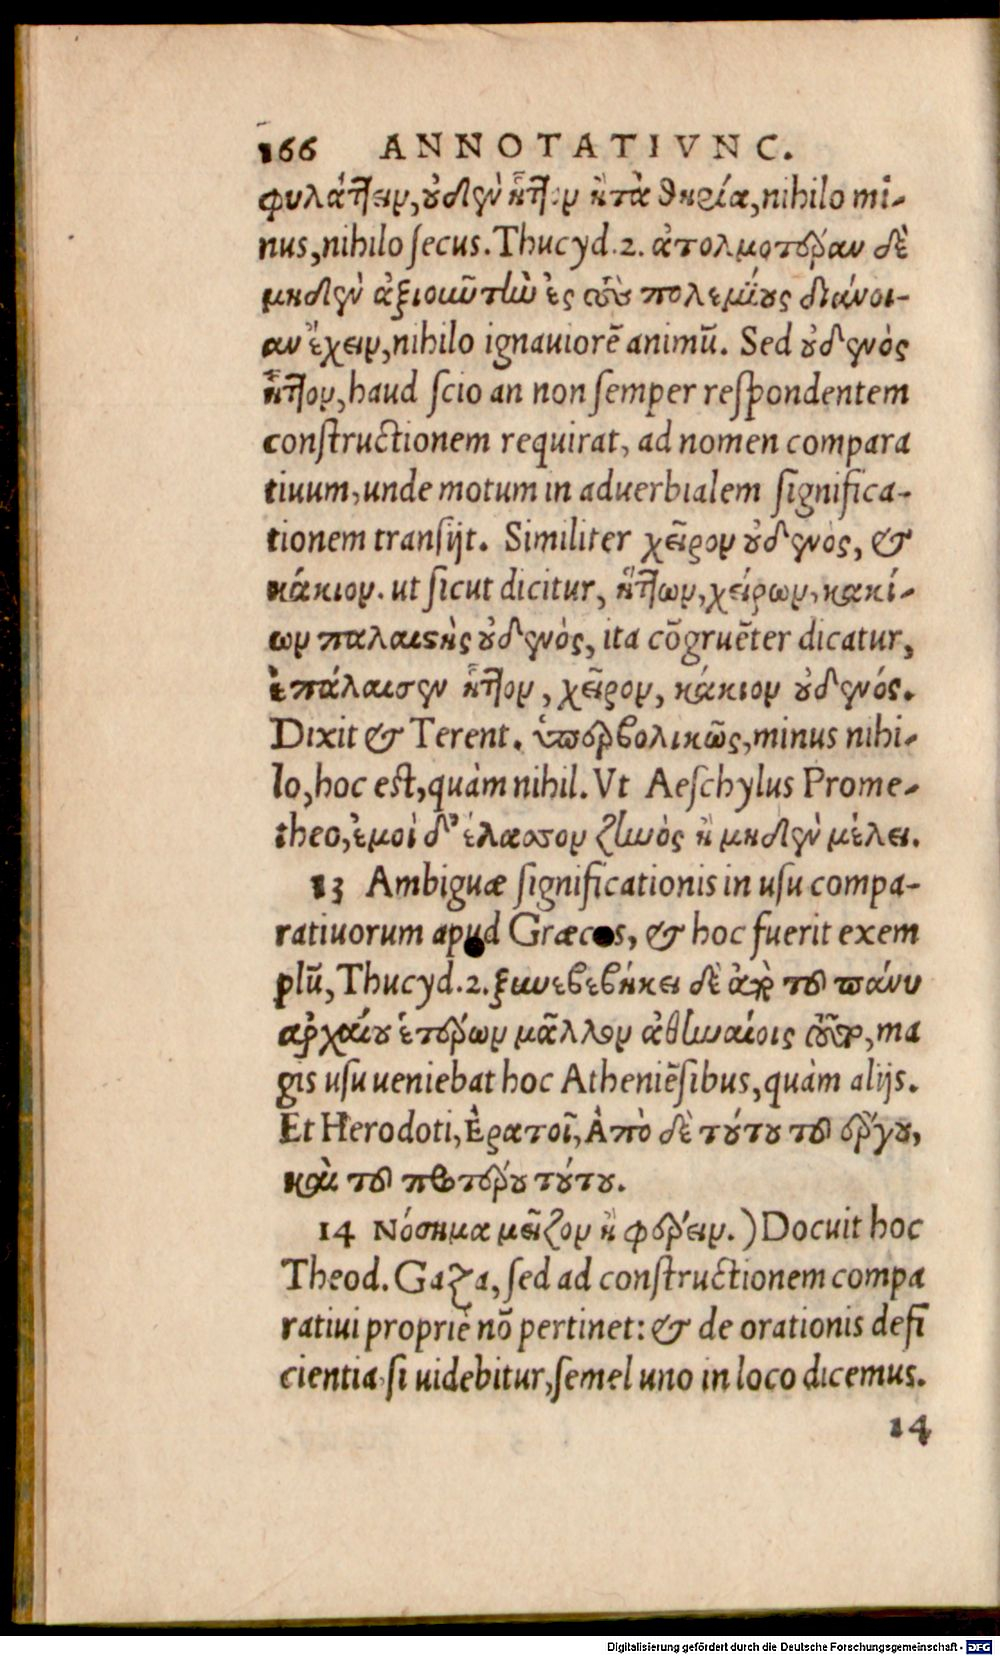 166 ANNOTATIVNC.
φυλάττειν, οὐδὲν ἧττον ἢ τὰ θηρία, nihilo mi-
nus, nihilo secus. Thucyd. 2. ἀτολμοτέραν δὲ
μηδὲν ἀξιοῦν τὴν ἐς τοὺς πολεμίους διάνοι-
αν ἔχειν, nihilo ignauiorē animū. Sed οὐδενὸς
ἧττον, haud scio an non semper respondentem
constructionem requirat, ad nomen compara
tiuum, unde motum in aduerbialem significa-
tionem transijt. Similiter χεῖρον οὐδενὸς, &
κάκιον. ut sicut dicitur, ἥττων, χείρων, κακί-
ων παλαιστὴς οὐδενὸς, ita cōgruēter dicatur,
ἐπάλαισεν ἧττον, χεῖρον, κάκιον οὐδενός.
Dixit & Terent. ὑπερβολικῶς, minus nihi-
lo, hoc est, quàm nihil. Vt Aeschylus Prome-
theo, ἐμοὶ δ' ἔλασσον ζηνὸς ἢ μηδὲν μέλει.
13 Ambiguæ significationis in usu compa-
ratiuorum apud Græcos, & hoc fuerit exem
plū, Thucyd. 2. ξυνεβεβήκει δὲ ἀπὸ τοῦ πάνυ
ἀρχαίου ἑτέρων μᾶλλον ἀθηναίοις τοῦτο, ma
gis usu ueniebat hoc Atheniēsibus, quàm alijs.
Et Herodoti, Ἐρατοῖ, Ἀπὸ δὲ τούτου τοῦ ἔργου,
καὶ τοῦ προτέρου τούτου.
14 Νόσημα μεῖζον ἢ φέρειν.) Docuit hoc
Theod. Gaza, sed ad constructionem compa
ratiui propriè nō pertinet: & de orationis defi
cientia, si uidebitur, semel uno in loco dicemus.
14
Digitalisierung gefördert durch die Deutsche Forschungsgemeinschaft - DFG